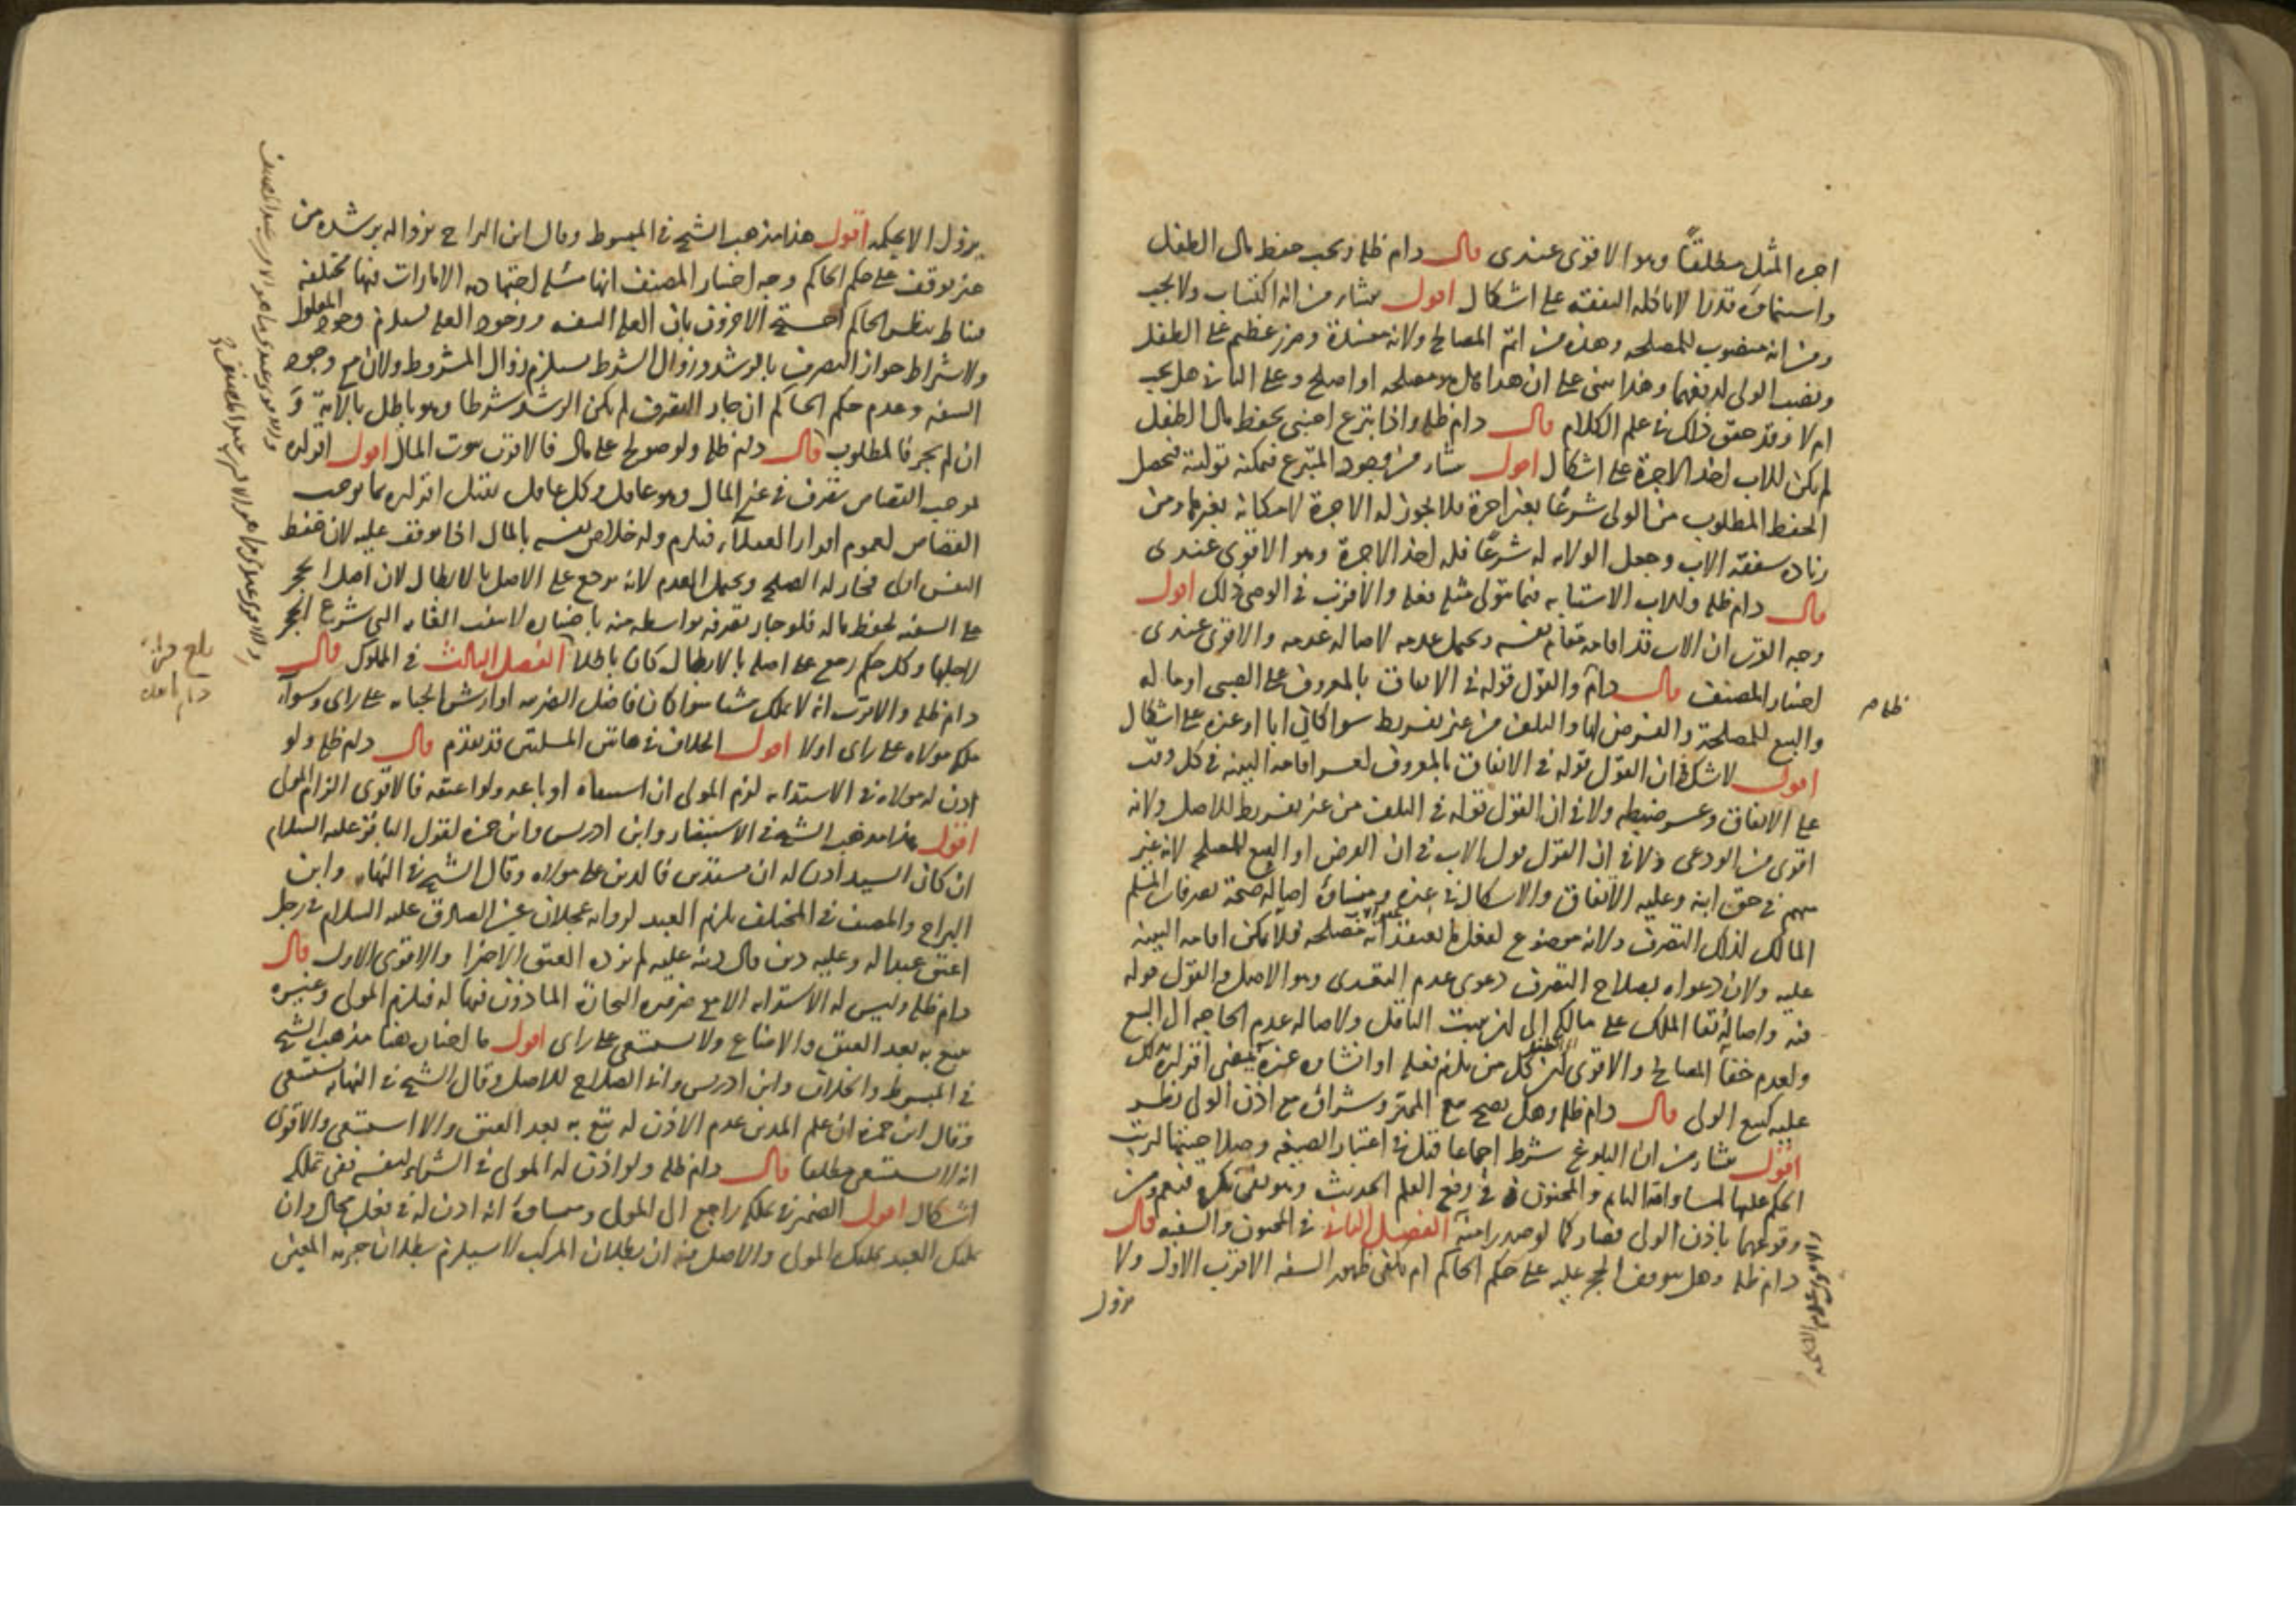 اجرة المثل مطلقاً وهو الاقوى عندى قال دام ظله ويجب حفظ مال الطفل
واستنماؤه قدرا لا تاكله النفقة على اشكال اقول ينشا من انه اكتساب ولا يجب
ومن انه منصوب للمصلحه وهذه من اتم المصالح ولانه مفسدة وضرر عظيم على الطفل
ونصب الولى لدفعهما وهذا مبنى على ان هذا هل هو مصلحه او اصلح وعلى الثانى هل يجب
ام لا وقد حقق ذلك فى علم الكلام قال دام ظله واذا تبرع اجنبى بحفظ مال الطفل
لم يكن للاب اخذ الاجرة على اشكال اقول ينشا من وجود المتبرع فيمكنه توليته فيحصل
الحفظ المطلوب من الولى شرعًا بغير اجرة فلا يجوز له الاجرة لامكانه بغيرها ومن
زياده شفقة الاب وجعل الولايه له شرعًا فله اخذ الاجرة وهو الاقوى عندى
قال دام ظله وللاب الاستنابه فيما يتولى مثله فعله والاقرب فى الوصى ذلك اقول
وجه القرب ان الاب قد اقامه مقام نفسه ويحتمل عدمه لاصاله عدمه والاقوى عندى
اختيار المصنف قال دام والقول قوله فى الانفاق بالمعروف على الصبى او ماله
والبيع للمصلحة والقرض لها والتلف من غير تفريط سوا كان ابا او غيره على اشكال
اقول لا شك فى ان القول قوله فى الانفاق بالمعروف لعسر اقامه البينه فى كل وقت
على الانفاق وعسر ضبطه ولا فى ان القول قوله فى التلف من غير تفريط للاصل ولانه
اقوى من الودعى ولا فى ان القول قول الاب فى ان القرض او البيع للمصلحه لانه غير
متهم فى حق ابنه وعليه الانفاق والاشكال فى غيره ومنشاؤه اصالة صحة تصرفات المسلم
المالك لذلك التصرف ولانه موضوع لفعل ما يعتقد انه مصلحه فلا يمكن اقامه البينه
عليه ولان دعواه بصلاح التصرف دعوى عدم التعدى وهو الاصل والقول قوله
فيه واصالة بقا الملك على مالكه الى ان يثبت الناقل ولاصاله عدم الحاجه الى البيع
ولعدم خفا المصالح والاقوى ان كل من يلزم فعله او انشاه غيره يمضى اقراره بذلك
عليه كبيع الولى قال دام ظله وهل يصح بيع المميز وشراؤه مع اذن الولى نظر
اقول ينشا من ان البلوغ شرط اجماعا قيل فى اعتبار الصيغه وصلاحيتها لترتب
الحكم عليها لمساواته النايم والمجنون فى رفع القلم الحديث
وقوعهما باذن الولى فصار كما لو صدر منه الفصل الثانى فى المجنون والسفيه قال
دام ظله وهل يتوقف الحجر عليه على حكم الحاكم ام يكفى ظهور السفه الاقرب الاول ولا
يزول
يزول الا بحكمه اقول هذا مذهب الشيخ فى المبسوط وقال ابن البراج بزواله برشده من
غير توقف على حكم الحاكم وجه اختيار المصنف انها مسئله اجتهاديه الامارات فيها مختلفه
فيناط بنظر الحاكم احتج الاخرون بان العله السفه ووجود العله يستلزم وجود المعلول
ولاشتراط جواز التصرف بالرشد وزوال الشرط يستلزم زوال المشروط ولان مع وجود
السفه وعدم حكم الحاكم ان جاز التصرف لم يكن الرشد شرطا وهو باطل بالآية و
ان لم يجز فالمطلوب قال دام ظله ولو صولح على مال فالاقرب ثبوت المال اقول اقراره
بموجب القصاص تصرف فى غير المال وهو عاقل وكل عاقل يقبل اقراره بما يوجب
القصاص لعموم اقرار العقلاء فيلزم وله خلاص نفسه بالمال اذا توقف عليه لان حفظ
النفس اولى فجاز له الصلح ويحتمل العدم لانه يرجع على الاصل بالابطال لان اصل الحجر
على السفيه لحفظ ماله فلو جاز تصرفه بواسطه منه باختياره لانتفت الغايه التى شرع الحجر
لاجلها وكل حكم رجع على اصله بالابطال كان باطلا الفصل الثالث فى المملوك قال
دام ظله والاقرب انه لا يملك شيئا سوا كان فاضل الضريبه او ارش الجنايه على راى وسواء
ملكه مولاه على راى اولا اقول الخلاف فى هاتين المسلتين قد تقدم قال دام ظله ولو
اذن له مولاه فى الاستدانه لزم المولى ان استبقاه او باعه ولو اعتقه فالاقوى الزام المولى
اقول هذا مذهب الشيخ فى الاستبصار وابن ادريس وابن حمزة لقول الباقر عليه السلام
ان كان السيد اذن له ان يستدين فالدين على مولاه وقال الشيخ فى النهايه وابن
البراج والمصنف فى المختلف يلزم العبد لروايه عجلان عن الصادق عليه السلام فى رجل
اعتق عبدا له وعليه دين قال دينه عليه لم يزده العتق الا خيرا والاقوى الاول قال
دام ظله وليس له الاستدانه الا مع ضروره التجارة الماذون فيها له فيلزم المولى وغيره
يتبع به بعد العتق والا ضاع ولا يستسعى على راى اقول ما اختاره هنا مذهب الشيخ
فى المبسوط والخلاف وابن ادريس وابو الصلاح للاصل وقال الشيخ فى النهايه يستسعى
وقال ابن حمزة ان علم المدين عدم الاذن له يتبع به بعد العتق والا استسعى والاقوى
انه لا يستسعى مطلقا قال دام ظله ولو اذن له المولى فى الشراء لنفسه ففى تملكه
اشكال اقول الضمير فى تملكه راجع الى المولى ومنشاؤه انه اذن له فى فعل محال وان
تملك العبد يملك المولى والاصل فيه ان بطلان المركب لا يستلزم بطلان جزيه المعين
بلغ قراءة
دام ظله